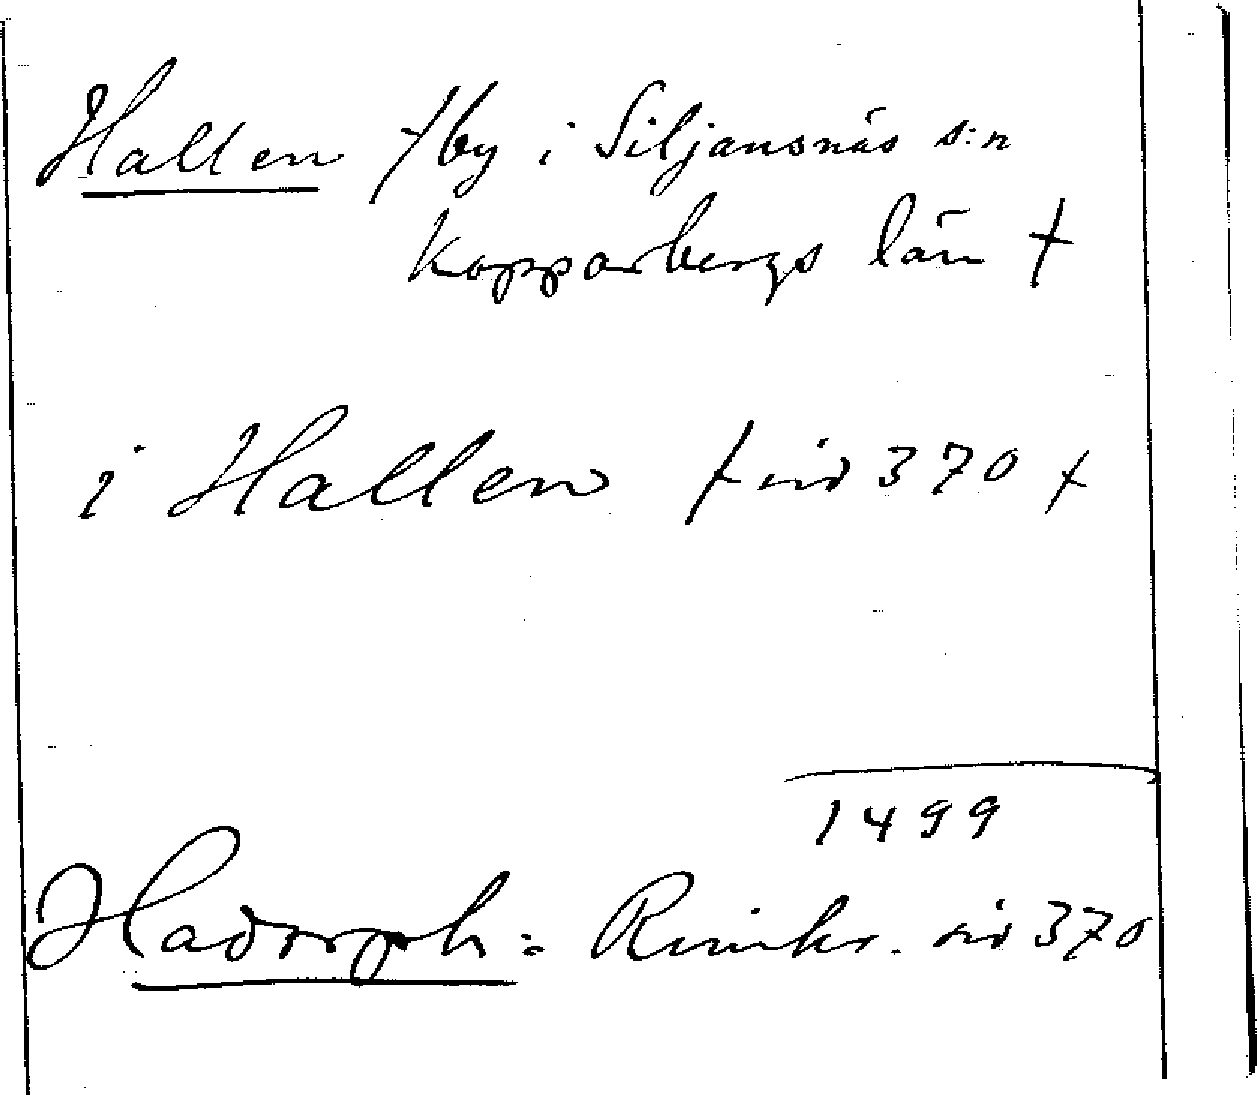 Hallen /by i Siljansnäs s:n
Kopparbergs län /
i Hallen / sid 370 /
1499
Hadorph: Rimkr. sid 370